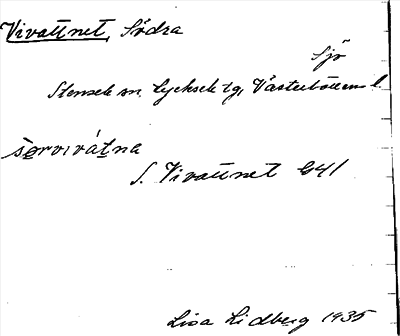 Vivattnet, Södra
Sjö
Stensele sn. Lycksele tg, Västerbottens l.
sørvivátna
S. Vivattnet G41
Lisa Lidberg 1935